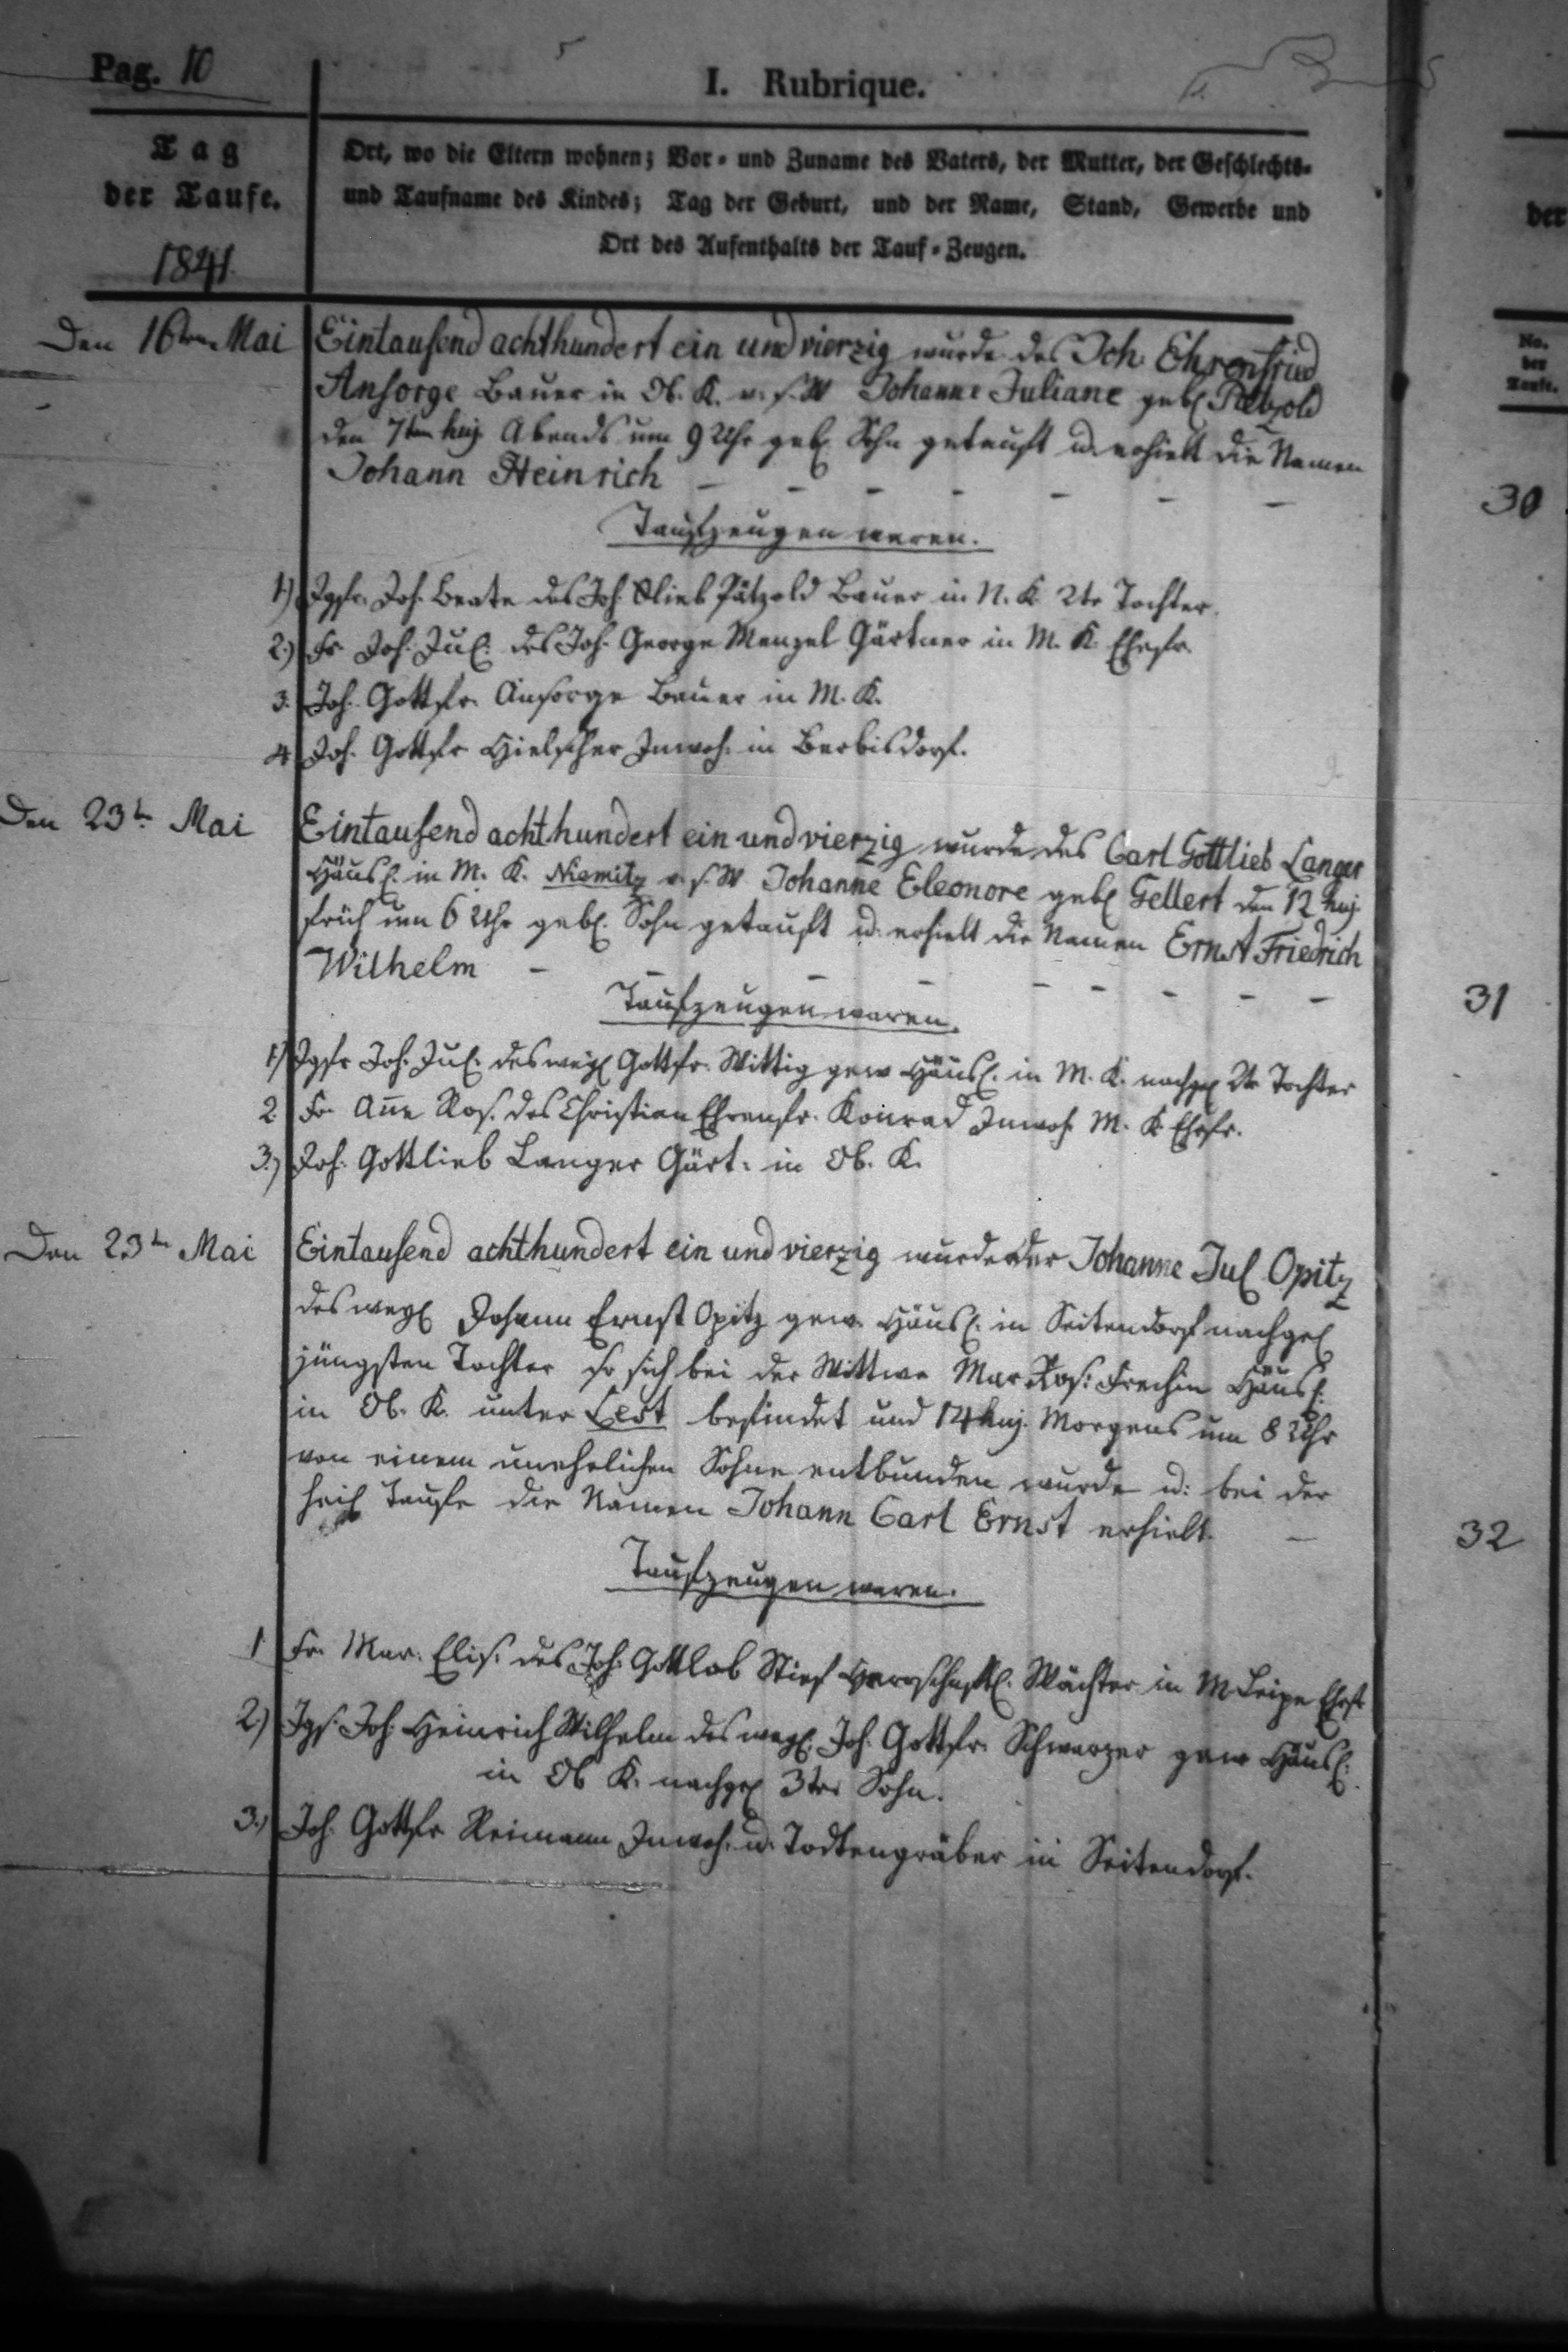 Pag. 10
I. Rubrique.
Tag
der Taufe.
1841.
Ort, wo die Eltern wohnen; Vor- und Zuname des Vaters, der Mutter, der Geschlechts-
und Taufname des Kindes; Tag der Geburt, und der Name, Stand, Gewerbe und
Ort des Aufenthalts der Tauf-Zeugen.
Den 16ten Mai Eintausend achthundert ein und vierzig wurde des Joh. Ehrenfried
Ansorge Bauer in Ob. K. v. s. W Johanne Juliane geb Petzold
den 7ten huj. Abends um 9 Uhr geb Sohn getauft u. erhielt die Namen
Johann Heinrich – – – – – – –
Taufzeugen waren.
1) Jgfr. Joh. Beate des Joh. Glieb Pätzold Bauer in N. K. 2te Tochter.
2.) Fr Joh. Jul. des Joh. George Menzel Gärtner in M. K. Ehefr.
3. Joh. Gottfr. Ansorge Bauer in M. K.
4. Joh. Gottfr Hielscher Inwoh. in Berbisdorf.
No.
der
Taufe.
30
Den 23t. Mai Eintausend achthundert ein und vierzig wurde des Carl Gottlieb Langer
Häusl. in M. K. Niemitz v. s. W Johanne Eleonore geb Gellert den 12 huj.
früh um 6 Uhr geb. Sohn getauft u. erhielt die Namen Ernst Friedrich
Wilhelm – – – – – – – – –
Taufzeugen waren.
1.) Jgfr Joh. Jul. des weyl Gottfr. Wittig gew Häusl. in M. K. nachgel 2te Tochter
2 Fr. Anne Ros. des Christian Ehrenfr. Konrad Inwoh M. K Ehefr.
3.) Joh. Gottlieb Langer Gärt. in Ob. K.
31
Den 23t Mai Eintausend achthundert ein und vierzig wurde der Johanne Jul Opitz
des weyl Johann Ernst Opitz gew. Häusl. in Seitendorf nachgel
jüngsten Tochter so sich bei der Wittwe Mar. Ros: Frechin Häusl.
in Ob. K. unter befindet und 14 huj. Morgens um 8 Uhr
von einem unehelichen Sohne entbunden wurde u: bei der
heil Taufe die Namen Johann Carl Ernst erhielt. –
Taufzeugen waren.
1 Fr. Mar. Elis. des Joh. Gottlob Stief Herrschaftl. Wächter in M Leipe Ehefr
2.) Jgs. Joh. Heinrich Wilhelm des weyl. Joh. Gottfr. Schwarzer gew Häusl.
in Ob K. nachgel 3ter Sohn.
3.) Joh. Gottfr Reimann Inwoh. u. Todtengräber in Seitendorf.
32